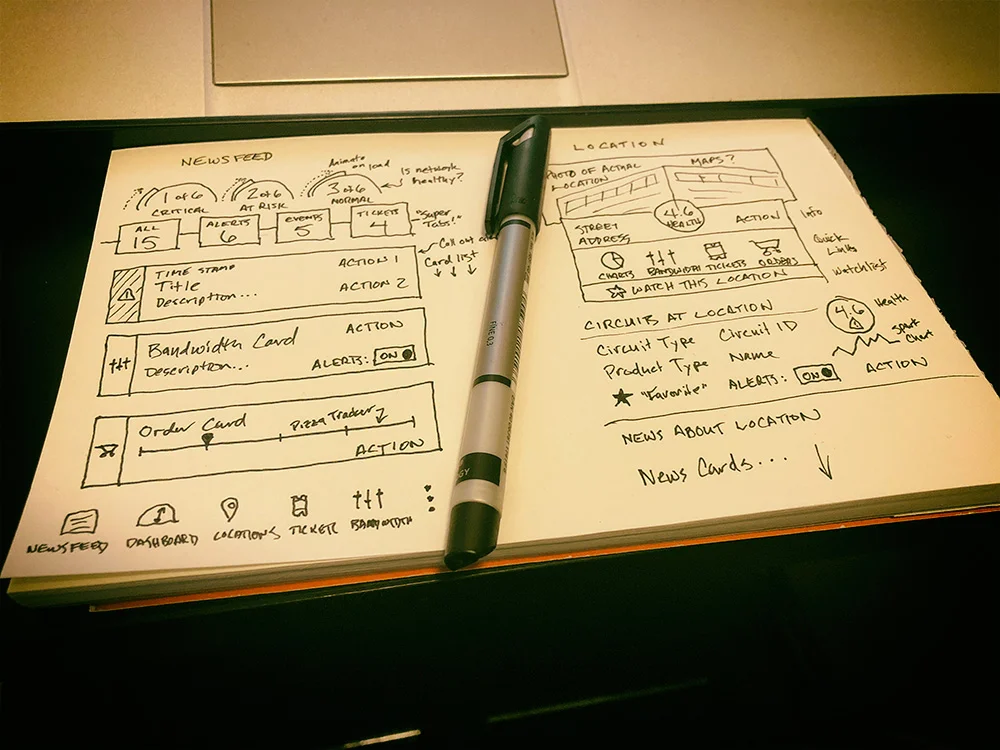 NEWSFEED
Animate
on load
Is network
healthy?
1 of 6
CRITICAL
2 of 6
AT RISK
3 of 6
NORMAL
ALL
15
ALERTS
6
EVENTS
5
TICKETS
4
"Super
Tabs!"
Call out
Card list
TIME STAMP
Title
Description...
ACTION 1
ACTION 2
Bandwidth Card
Description...
ACTION
ALERTS: ON
Order Card
Pizza Tracker
ACTION
NEWSFEED
DASHBOARD
LOCATIONS
TICKET
BANDWIDTH
FINE 0.3
LOCATION
PHOTO OF ACTUAL
LOCATION
MAPS?
4.6
HEALTH
STREET
ADDRESS
ACTION
CHARTS
BANDWIDTH
TICKETS
ORDERS
WATCH THIS LOCATION
Info
Quick
Links
Watchlist
CIRCUITS AT LOCATION
Circuit Type Circuit ID
Product Type Name
"Favorite" ALERTS: ON ACTION
4.6
Health
Spark
Chart
NEWS ABOUT LOCATION
News Cards...